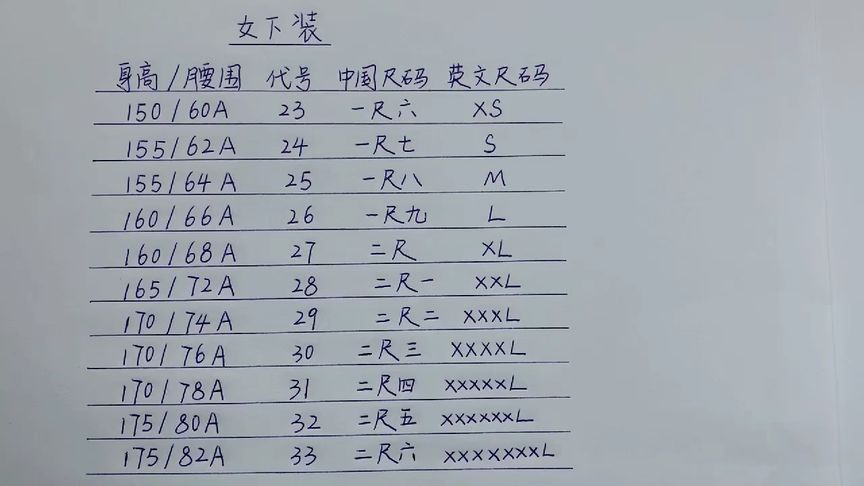 女下装
身高/腰围 代号 中国尺码 英文尺码
150/60A 23 一尺六 XS
155/62A 24 一尺七 S
155/64A 25 一尺八 M
160/66A 26 一尺九 L
160/68A 27 二尺 XL
165/72A 28 二尺一 XXL
170/74A 29 二尺二 XXXL
170/76A 30 二尺三 XXXXL
170/78A 31 二尺四 XXXXXL
175/80A 32 二尺五 XXXXXXL
175/82A 33 二尺六 XXXXXXXL